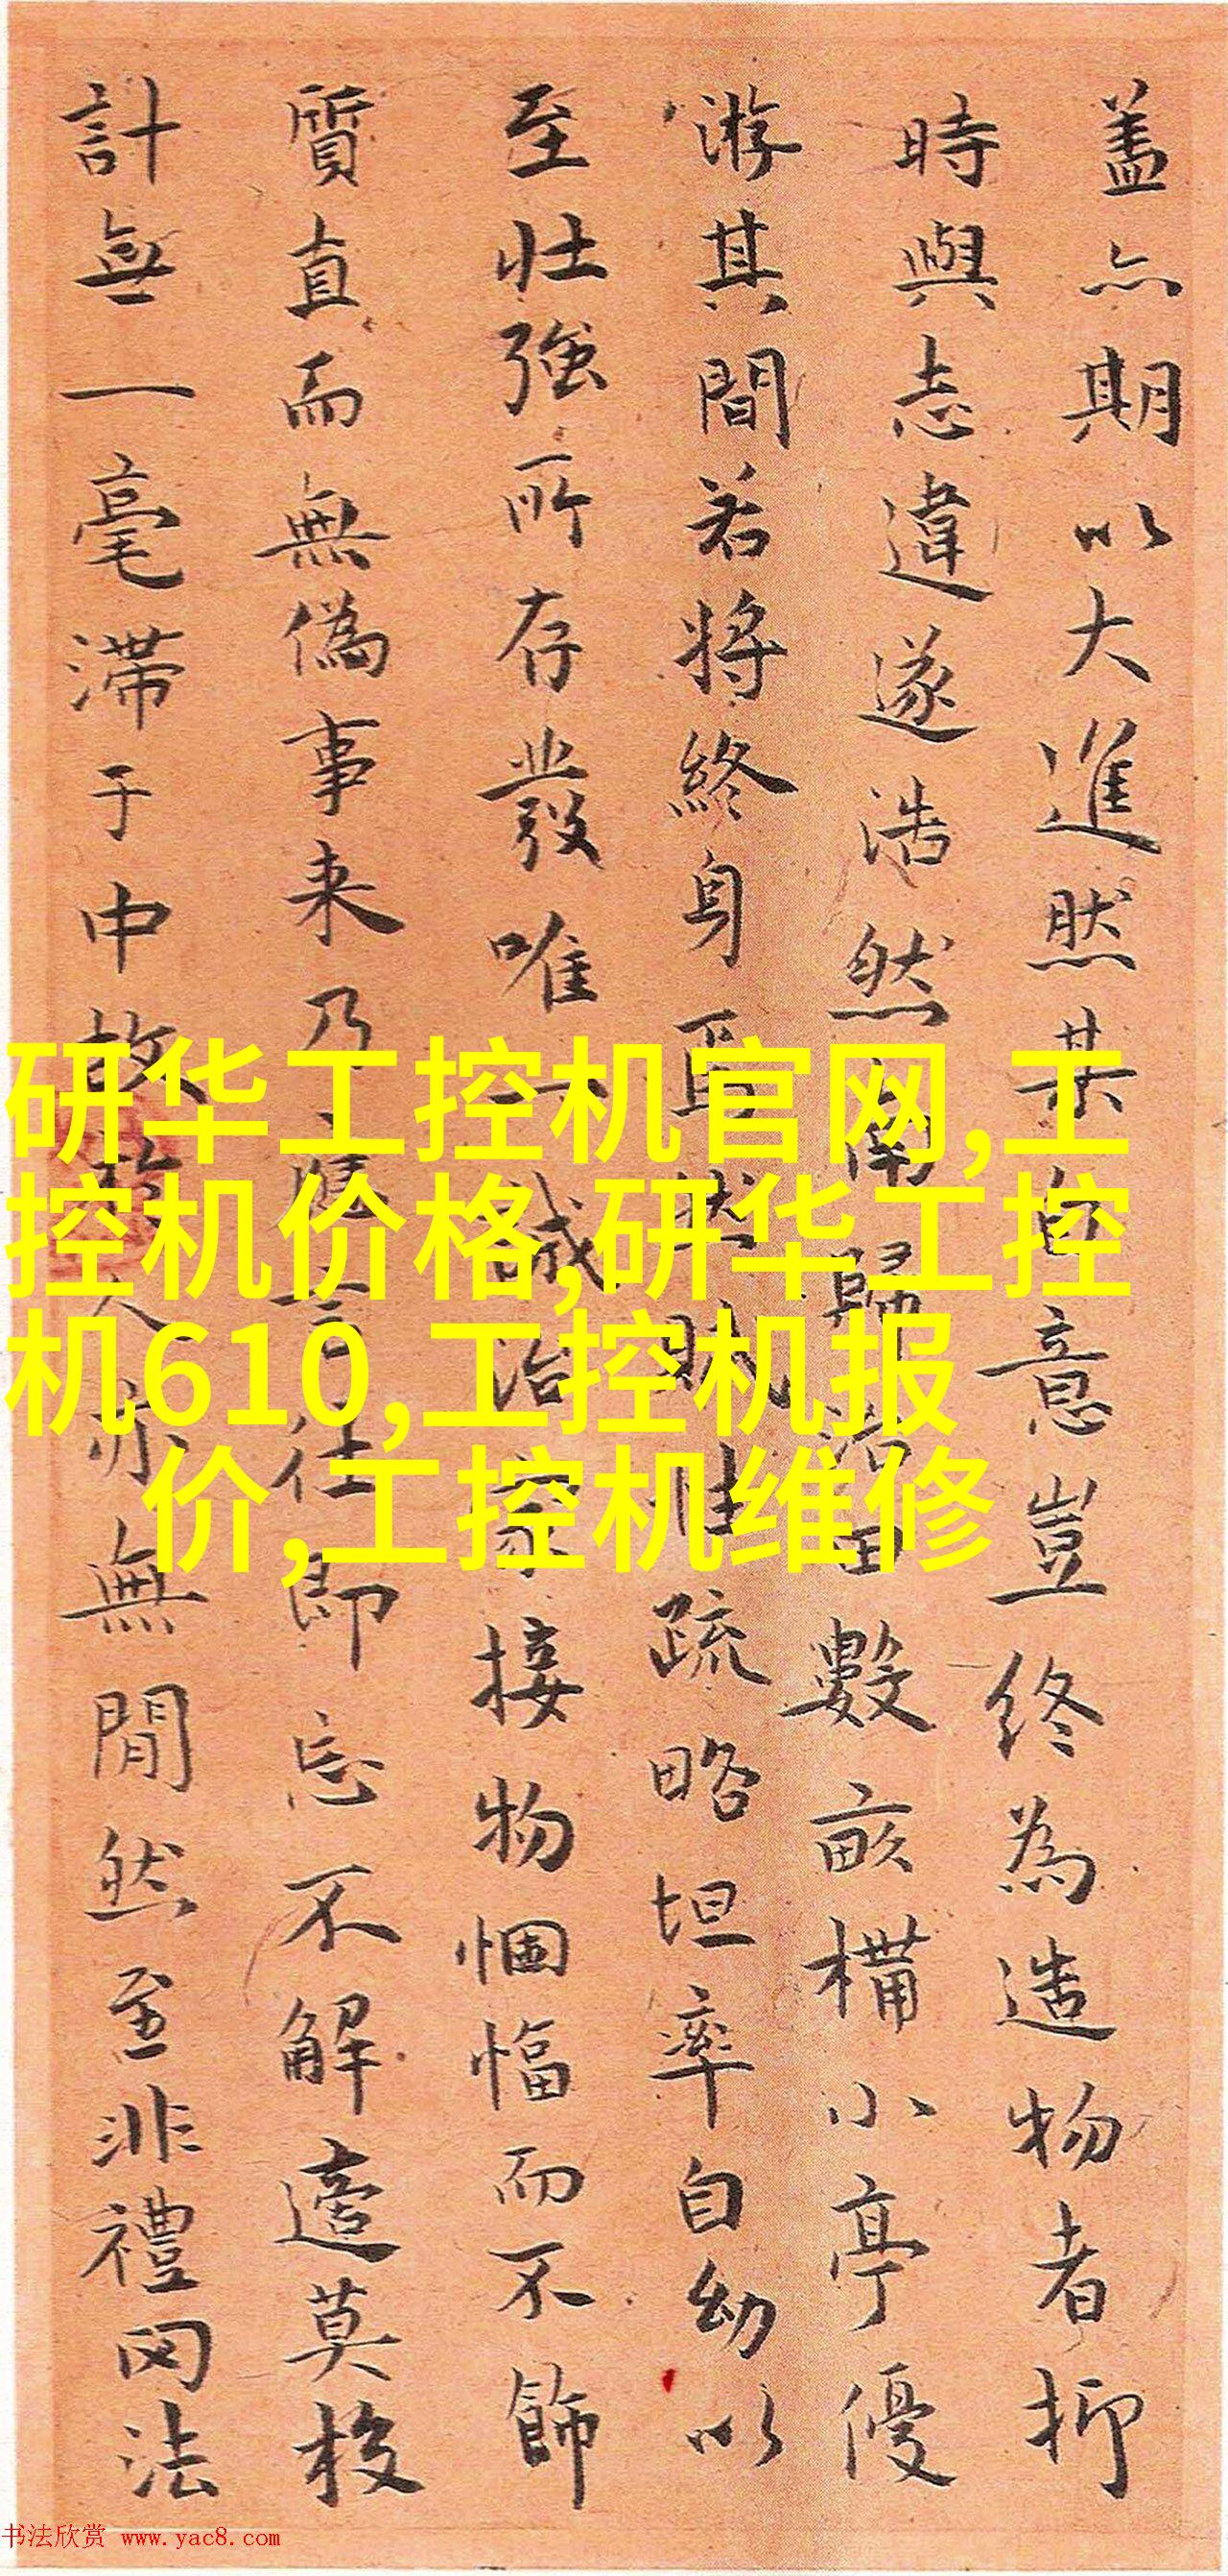 蓋亦期以大進然其自意豈終為造物者抑
時與志違遂浩然南歸治田數畝構小亭優
游其間若將終身焉然賦性疏略坦率自幼以
至壯強所存發唯一誠治家接物悃愊而不飾
質直而無偽事来乃應言仕即忘不解適莫校
計無一毫滯于中故於人亦無間然至非禮罔法
研华工控机官网,工
控机价格,研华工控
机610,工控机报
价,工控机维修
书法欣赏 www.yac8.com